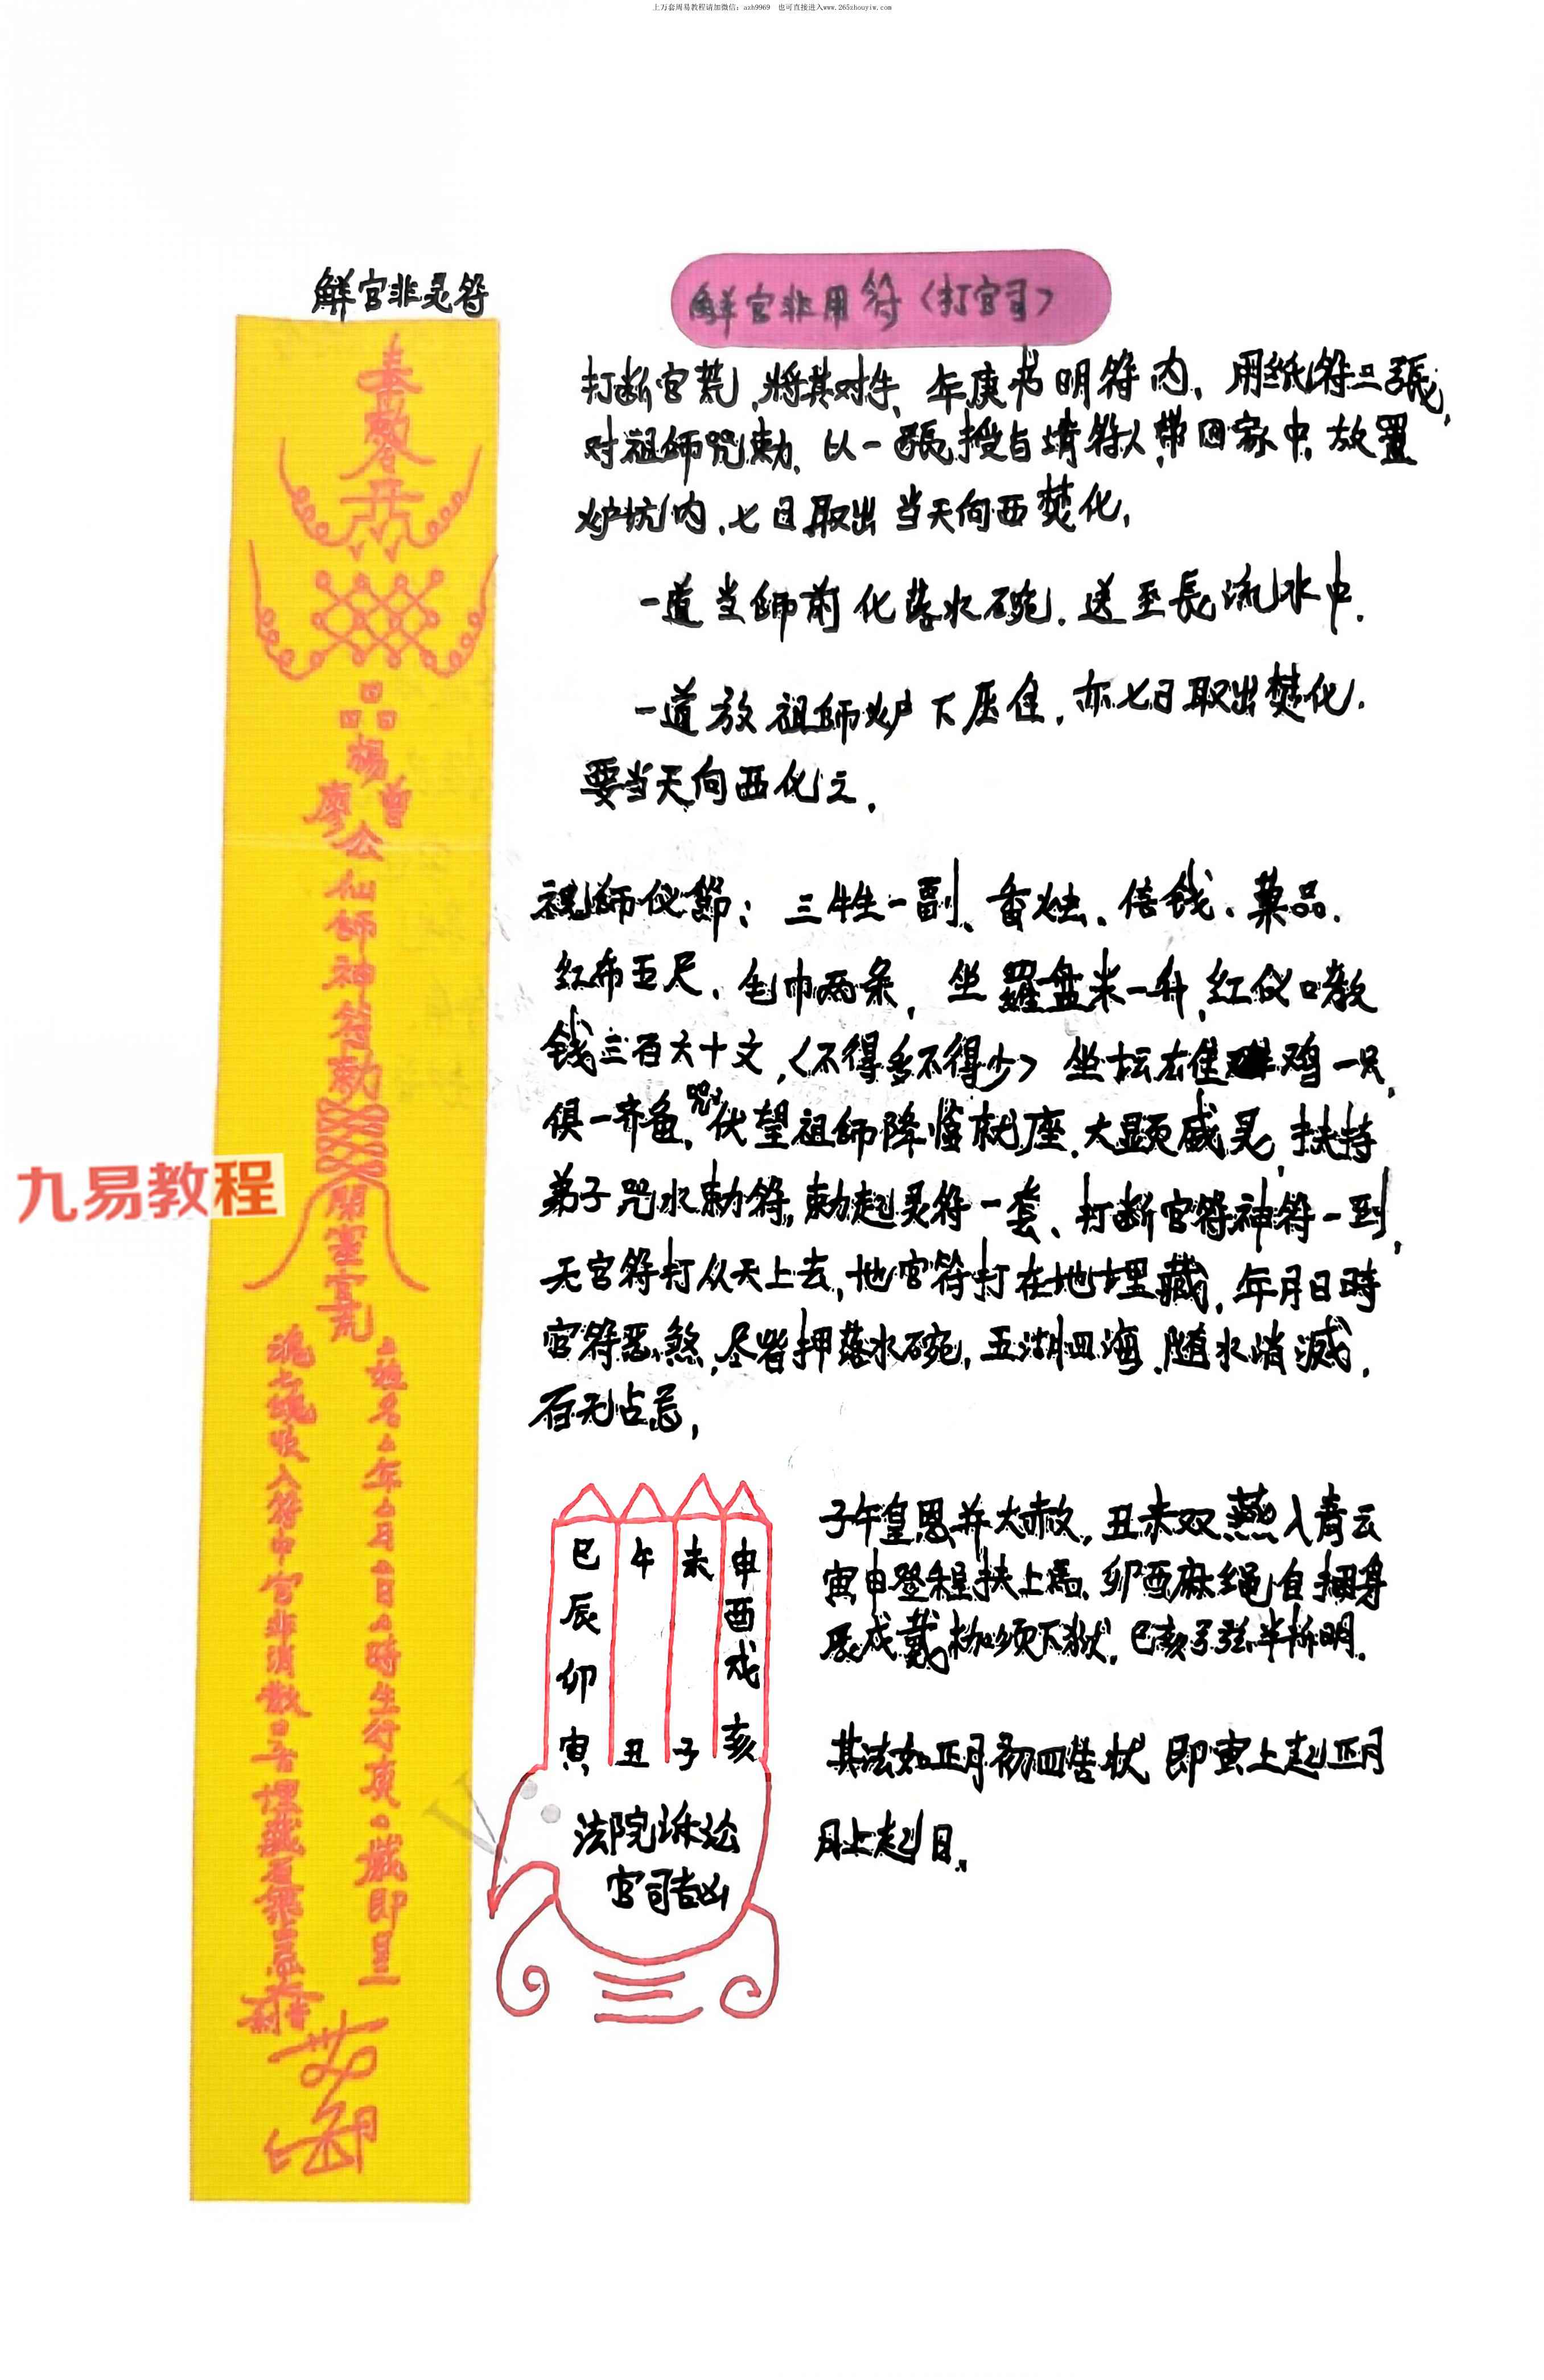 上万套周易教程请加微信：azh9969 也可直接进入www.265zhouyiw.com
解官非灵符
解官非用符（打官司）
打断官荒，将其对牛、年庚书明符内，用纸符三張，
对祖师咒勅，以一張授与请符人，带回家中，放置
炉坑内，七日取出当天向西焚化，
一道当師前化落水碗，送至長流水中．
一道放祖師炉下压住，亦七日取出焚化．
要当天向西化之．
祝師仪節：三牲一副、香烛、信钱、菓品．
红布五尺、毛巾两条，坐羅盘米一升，红仪口教
钱三百六十文，（不得多不得少）坐坛大雄鸡一只，
俱一齐备，咒：伏望祖師降临就座，大顕威灵，扶持
弟子咒水勅符，勅起灵符一套、打断官符神符一到，
天官符打从天上去，地官符打在地埋藏，年月日時
官符恶煞，尽皆押落水碗，五湖四海，随水消滅，
百无占忌，
奉
勅令
品
楊
廖 曾
公
仙
師
神
符
勅
開
塞
官
荒
△姓名△年△月△日△時生行庚△歲即呈
魂之魄收入符中官非消散
九易教程
巳 午 未 申
辰 酉
卯 戌
寅 丑 子 亥
法院诉讼
官司吉凶
子午皇恩并大赦，丑未双燕入青云
寅申登程扶上马，卯酉麻绳自捆身
辰戌戴枷须下狱，巳亥了弦半拆明．
其法如正月初四告状 即寅上起正月
月上起日．